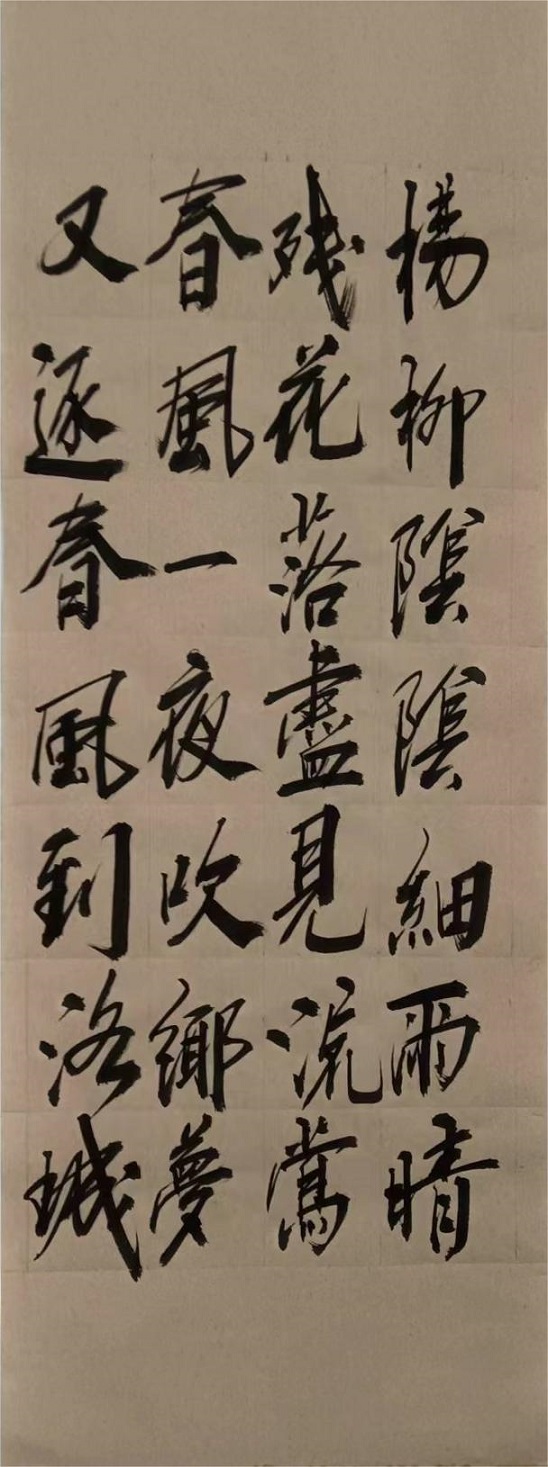 楊柳陰陰細雨晴
残花落盡見流鶯
春風一夜吹鄉夢
又逐春風到洛城